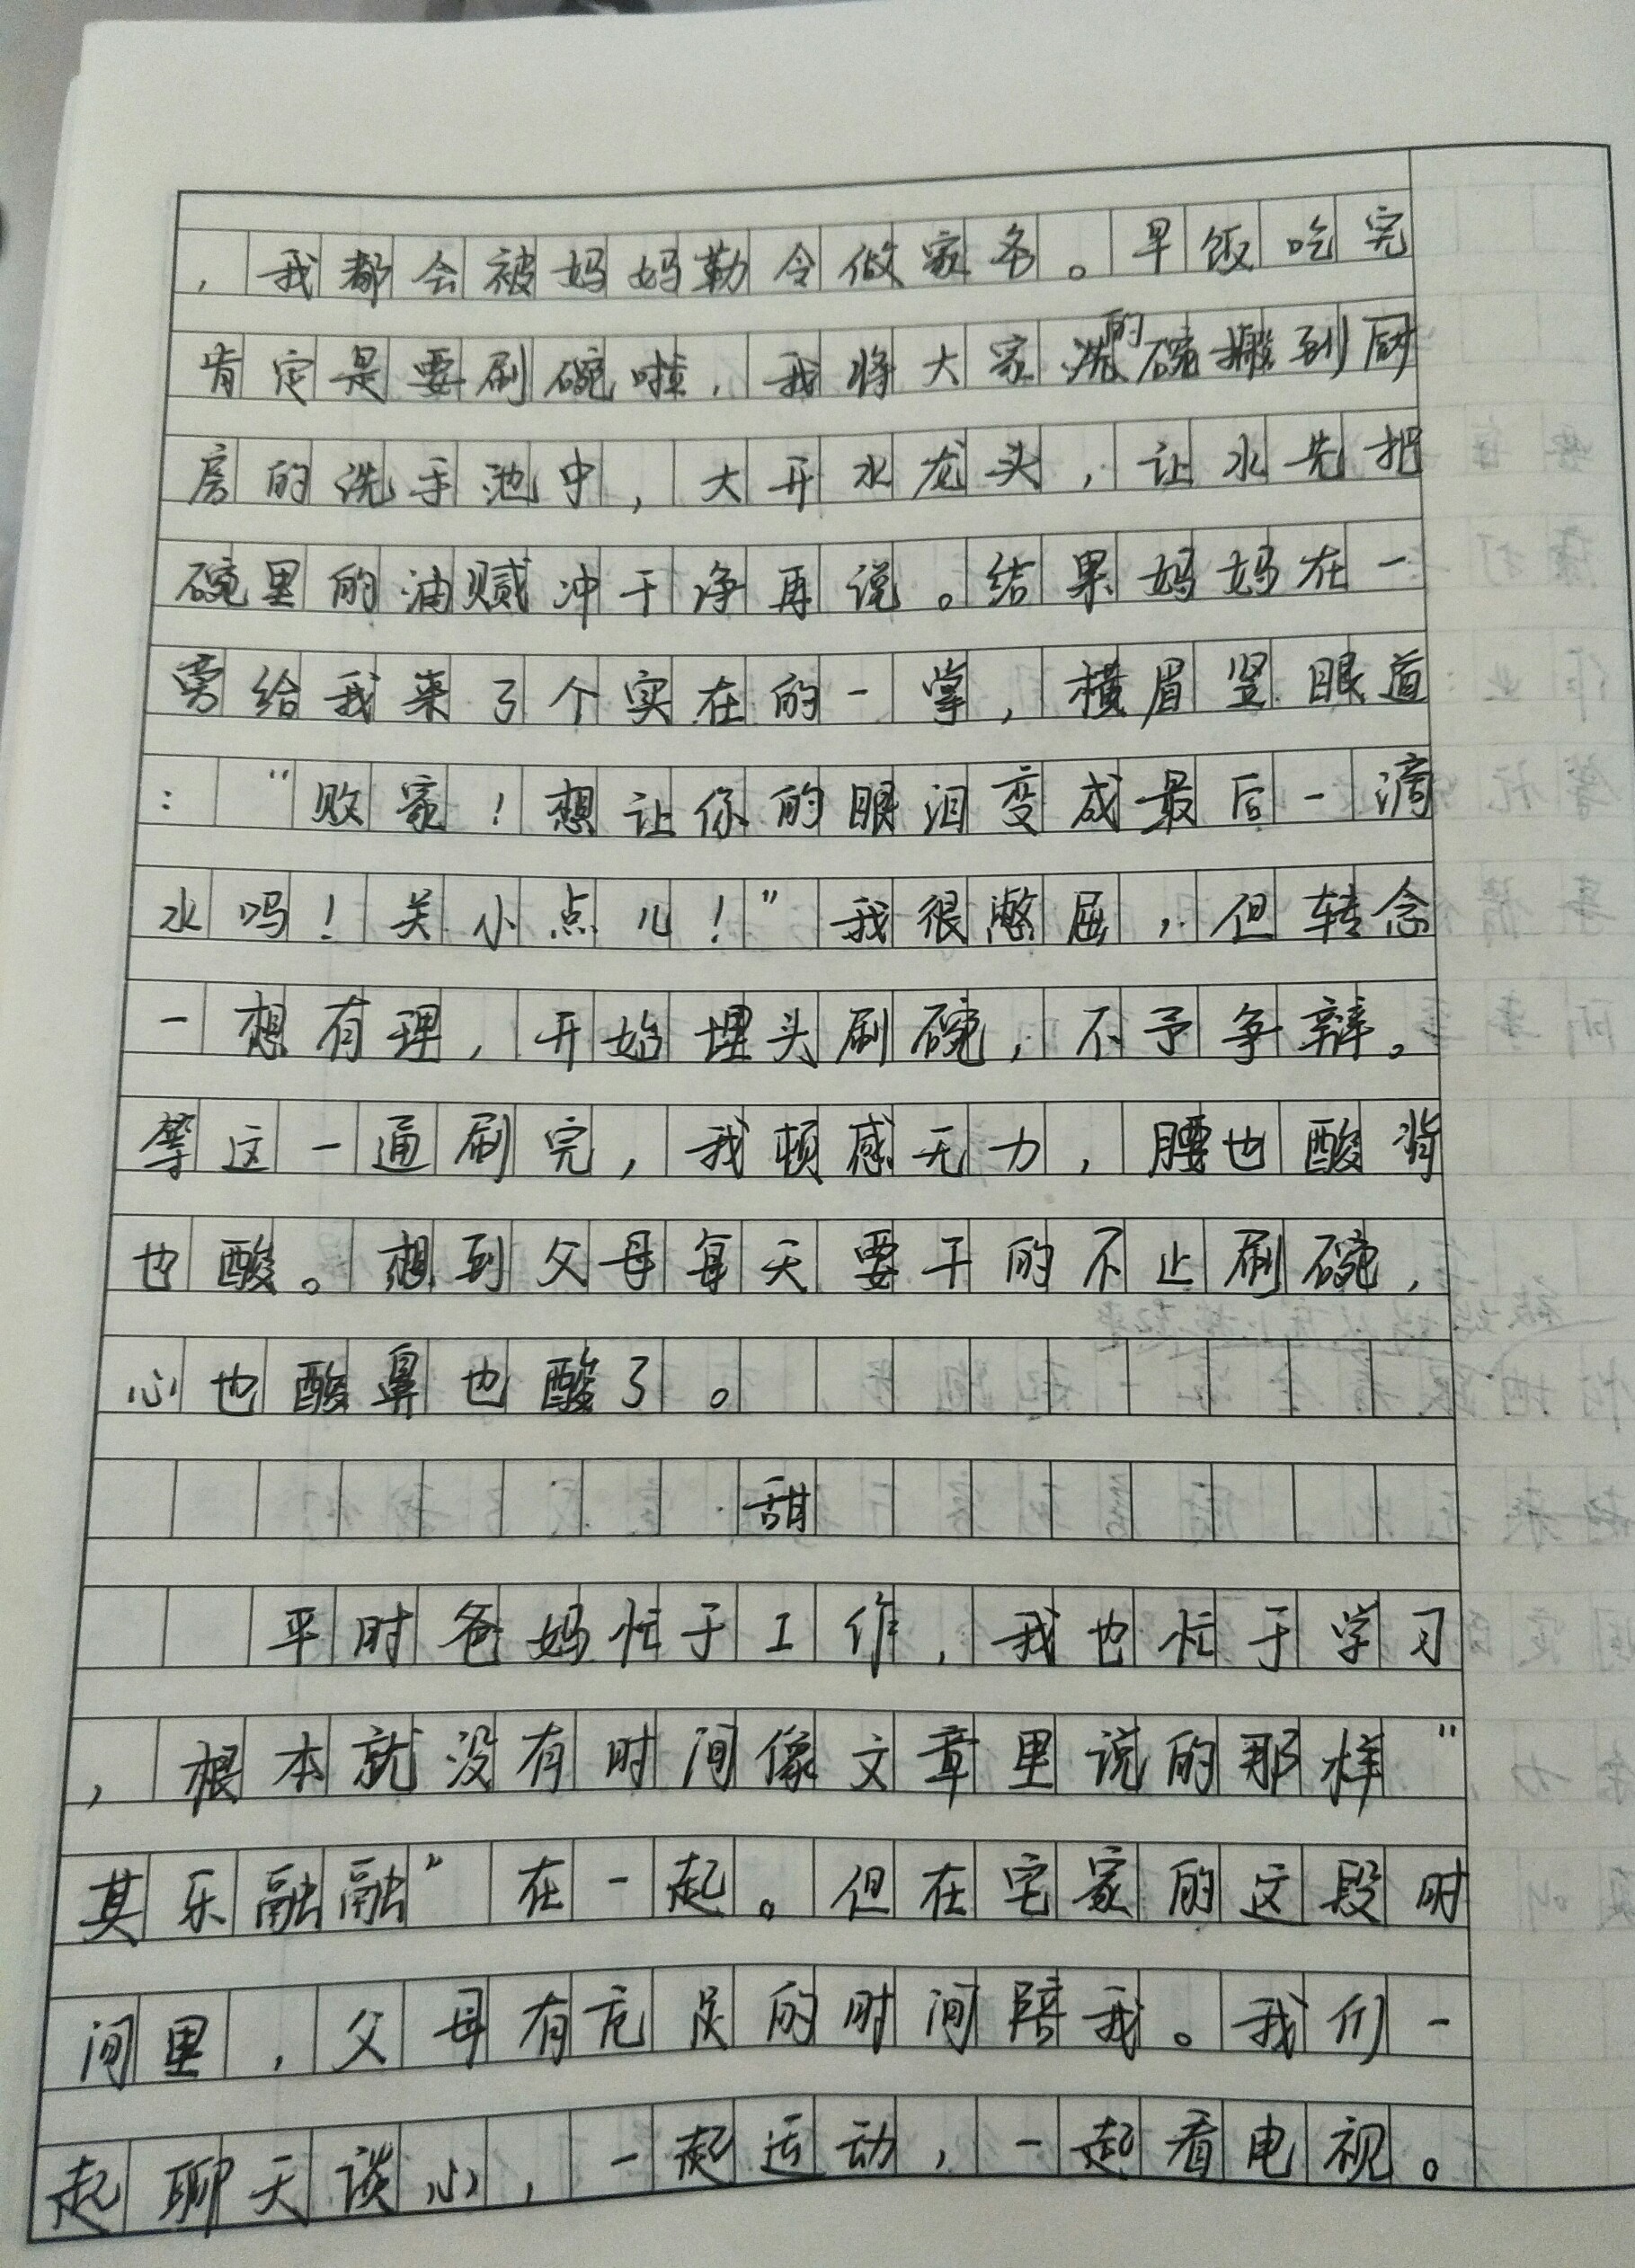 ，我都会被妈妈勒令做家务。早饭吃完
肯定是要刷碗啦，我将大家洗的碗搬到厨
房的洗手池中，大开水龙头，让水先把
碗里的油赃冲干净再说。结果妈妈在一
旁给我来了个实在的一掌，横眉竖眼道
：“败家！想让你的眼泪变成最后一滴
水吗！关小点儿！”我很憋屈，但转念
一想有理，开始埋头刷碗，不予争辩。
等这一通刷完，我顿感无力，腰也酸背
也酸。想到父母每天要干的不止刷碗，
心也酸鼻也酸了。
甜
平时爸妈忙于工作，我也忙于学习
，根本就没有时间像文章里说的那样“
其乐融融”在一起。但在宅家的这段时
间里，父母有充足的时间陪我。我们一
起聊天谈心，一起运动，一起看电视。